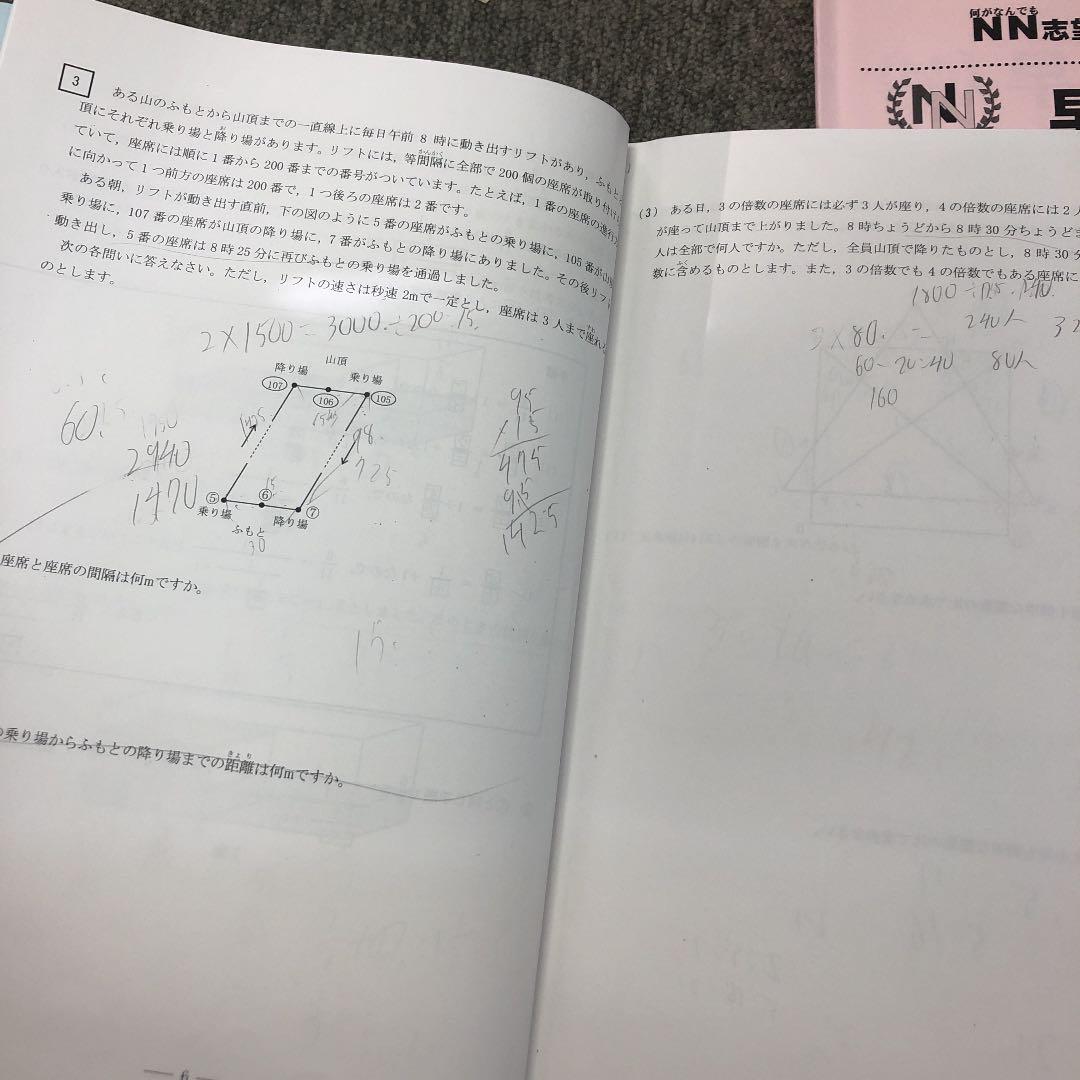 何がなんでも
NN志望
NN
早
3
ある山のふもとから山頂までの一直線上に毎日午前 8 時に動き出すリフトがあり，ふもと
頂にそれぞれ乗り場と降り場があります。リフトには，等間隔に全部で 200 個の座席が取り付け
ていて，座席には順に 1 番から 200 番までの番号がついています。たとえば，1 番の座席の進行
に向かって 1 つ前方の座席は 200 番で，1 つ後ろの座席は 2 番です。
ある朝，リフトが動き出す直前，下の図のように 5 番の座席がふもとの乗り場に，105 番が山
乗り場に，107 番の座席が山頂の降り場に，7 番がふもとの降り場にありました。その後リフ
動き出し，5 番の座席は 8 時 25 分に再びふもとの乗り場を通過しました。
次の各問いに答えなさい。ただし，リフトの速さは秒速 2mで一定とし，座席は 3 人まで座れ
のとします。
2×1500=3000÷200=15.
山頂
降り場 乗り場
107 106 105
98.
725
60
2940
1470
95
×15
475
95
142.5
⑤ ⑥ ⑦
乗り場 降り場
ふもと
30
座席と座席の間隔は何mですか。
15
乗り場からふもとの降り場までの距離は何mですか。
6
(3) ある日，3 の倍数の座席には必ず 3 人が座り，4 の倍数の座席には 2 人
が座って山頂まで上がりました。8 時ちょうどから 8 時 30 分ちょうどま
人は全部で何人ですか。ただし，全員山頂で降りたものとし，8 時 30 分
数に含めるものとします。また，3 の倍数でも 4 の倍数でもある座席に
3×80. = 240人
60-20=40 80人
160